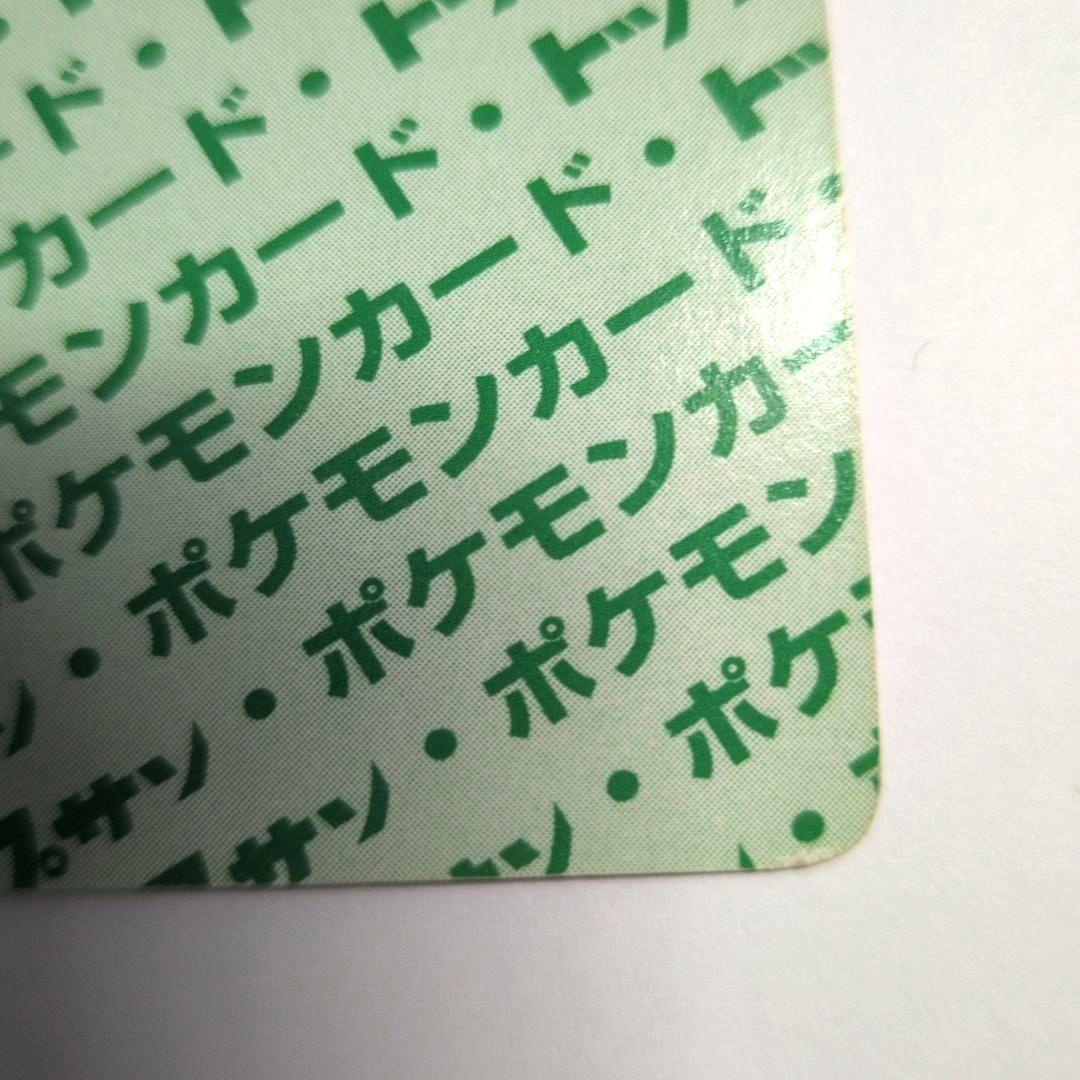 ード・トッ
カード・トッ
モンカード・トッ
ポケモンカード・ト
・ポケモンカード・
プサン・ポケモンカー
プサン・ポケモン
サン・ポケ